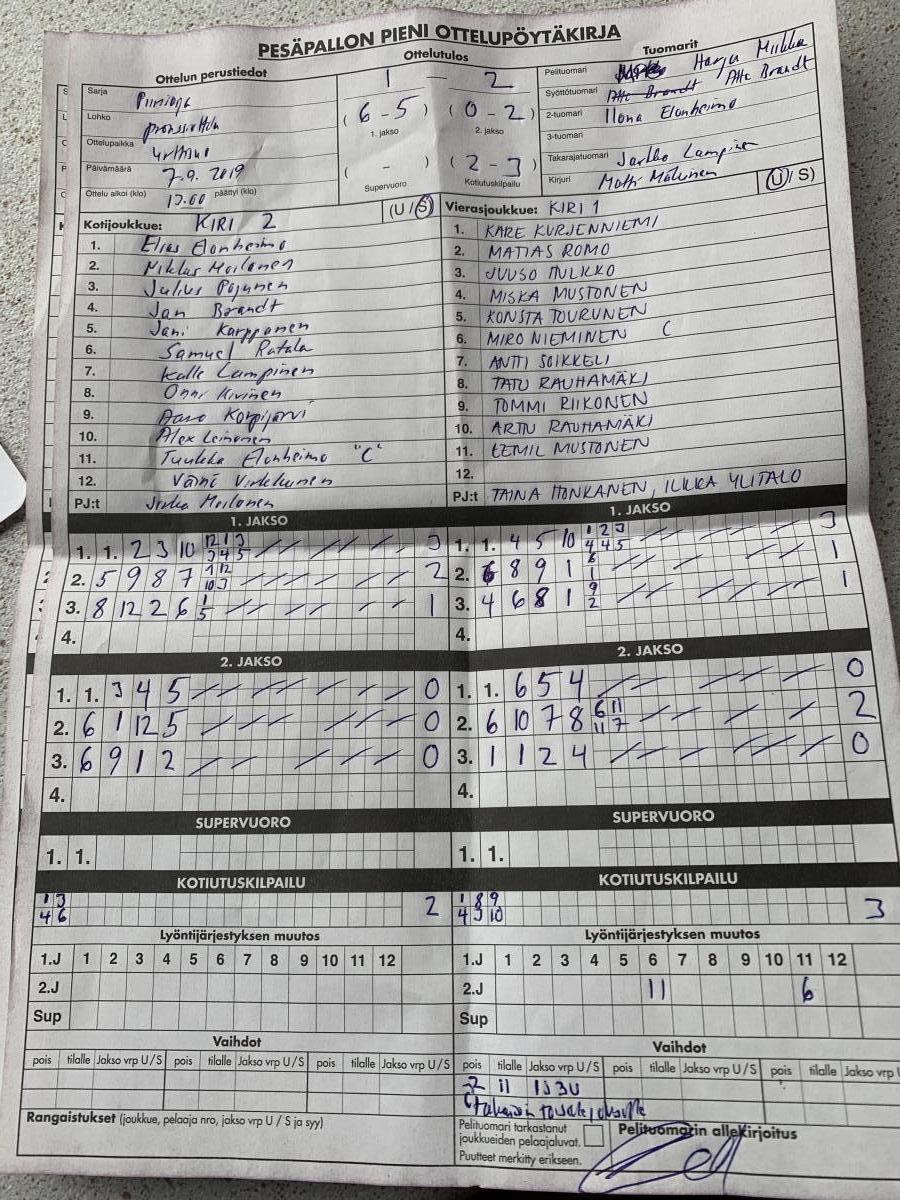 PESÄPALLON PIENI OTTELUPÖYTÄKIRJA
Ottelun perustiedot
Sarja
Lohko
Ottelupaikka
Päivämäärä 7.9. 2019
Ottelu alkoi (klo) päättyi (klo)
Ottelutulos
1 — 2
(6 - 5) (0 - 2)
1. jakso 2. jakso
( - ) (2 - 3)
Supervuoro Kotiutuskilpailu
Tuomarit
Pelituomari Harju Miikka
Syöttötuomari Atte Brandt Atte Brandt
2-tuomari Ilona Elonheimo
3-tuomari
Takarajatuomari Jarkko Lampinen
Kirjuri Matti Moilanen
Kotijoukkue: KIRI 2 (U / S)
1. Elias Elonheimo
2. Niklas Moilanen
3. Julius Pojunen
4. Jan Brandt
5. Jani Karppanen
6. Samuel Ratala
7. Kalle Lampinen
8. Onni Kivinen
9. Aaro Korpijärvi
10. Alex Leinonen
11. Tuukka Elonheimo "C"
12. Väinö
PJ:t Moilanen
Vierasjoukkue: KIRI 1 (U / S)
1. KARE KURJENNIEMI
2. MATIAS ROMO
3. JUUSO HULKKO
4. MISKA MUSTONEN
5. KONSTA TOURUNEN
6. MIRO NIEMINEN C
7. ANTTI SOIKKELI
8. TATU RAUHAMÄKI
9. TOMMI RIIKONEN
10. ARTTU RAUHAMÄKI
11. EEMIL MUSTONEN
12.
PJ:t TAINA HONKANEN, ILKKA YLITALO
1. JAKSO
1. 1. 2 3 10 12 1 3 3 4 5 3
2. 5 9 8 7 1 12 10 3 2
3. 8 12 2 6 1 5 1
4.
1. JAKSO
1. 1. 4 5 10 1 2 3 4 4 5 3
2. 6 8 9 1 6 1 1
3. 4 6 8 1 9 2 1
4.
2. JAKSO
1. 1. 3 4 5 0
2. 6 1 12 5 0
3. 6 9 1 2 0
4.
2. JAKSO
1. 1. 6 5 4 0
2. 6 10 7 8 6 11 11 7 2
3. 1 12 4 0
4.
SUPERVUORO
1. 1.
SUPERVUORO
1. 1.
KOTIUTUSKILPAILU
1 3 4 6 2
KOTIUTUSKILPAILU
1 8 9 4 3 10 3
Lyöntijärjestyksen muutos
1.J 1 2 3 4 5 6 7 8 9 10 11 12
2.J
Sup
Lyöntijärjestyksen muutos
1.J 1 2 3 4 5 6 7 8 9 10 11 12
2.J 11 6
Sup
Vaihdot
pois tilalle Jakso vrp U / S pois tilalle Jakso vrp U / S pois tilalle Jakso vrp U / S
Rangaistukset (joukkue, pelaaja nro, jakso vrp U / S ja syy)
Vaihdot
pois tilalle Jakso vrp U / S pois tilalle Jakso vrp U / S pois tilalle Jakso vrp U
7 11 1J3U
Pelituomari tarkastanut
joukkueiden pelaajaluvat.
Puutteet merkitty erikseen.
Pelituomarin allekirjoitus